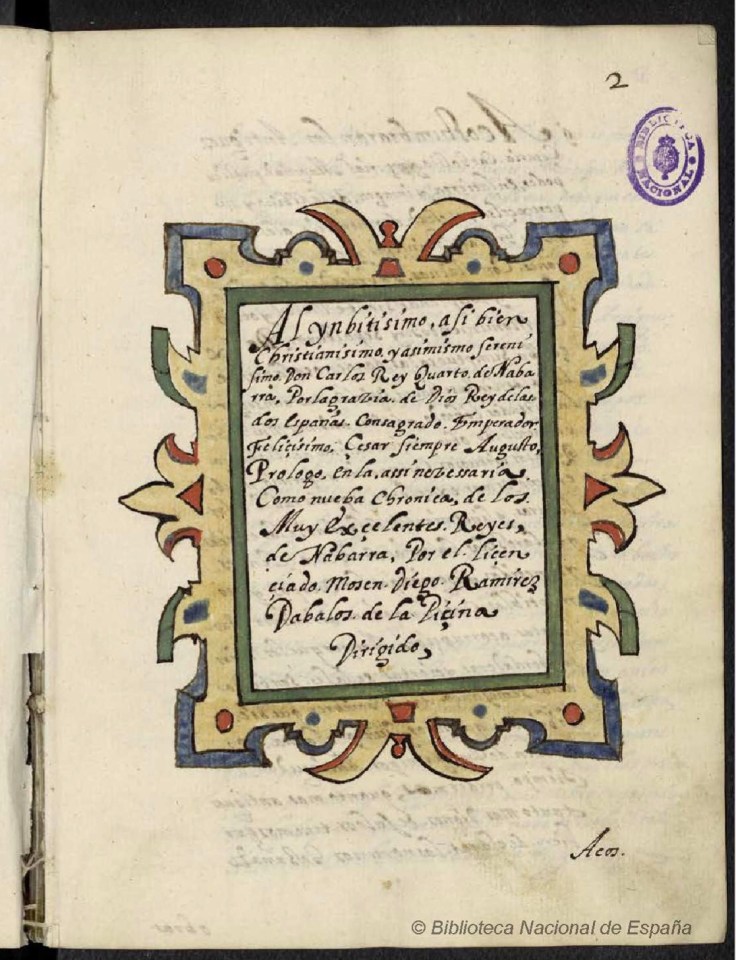 2
BIBLIOTECA NACIONAL
Al ynbitisimo, asi bien
Christianisimo, y asimismo sereni
simo. Don Carlos Rey Quarto. de Naba
rra, Por la grazia. de Dios Rey de las
dos españas. Consagrado. Emperador
Felicisimo, Cesar siempre Augusto,
Prologo, en la, assi nezessaria,
Como nueba Chronica, de los
Muy Excelentes Reyes,
de Nabarra, Por el licen
çiado. Mosen. Diego Ramirez
Dabalos de la Piçina
Dirigido,
Acos.
© Biblioteca Nacional de España